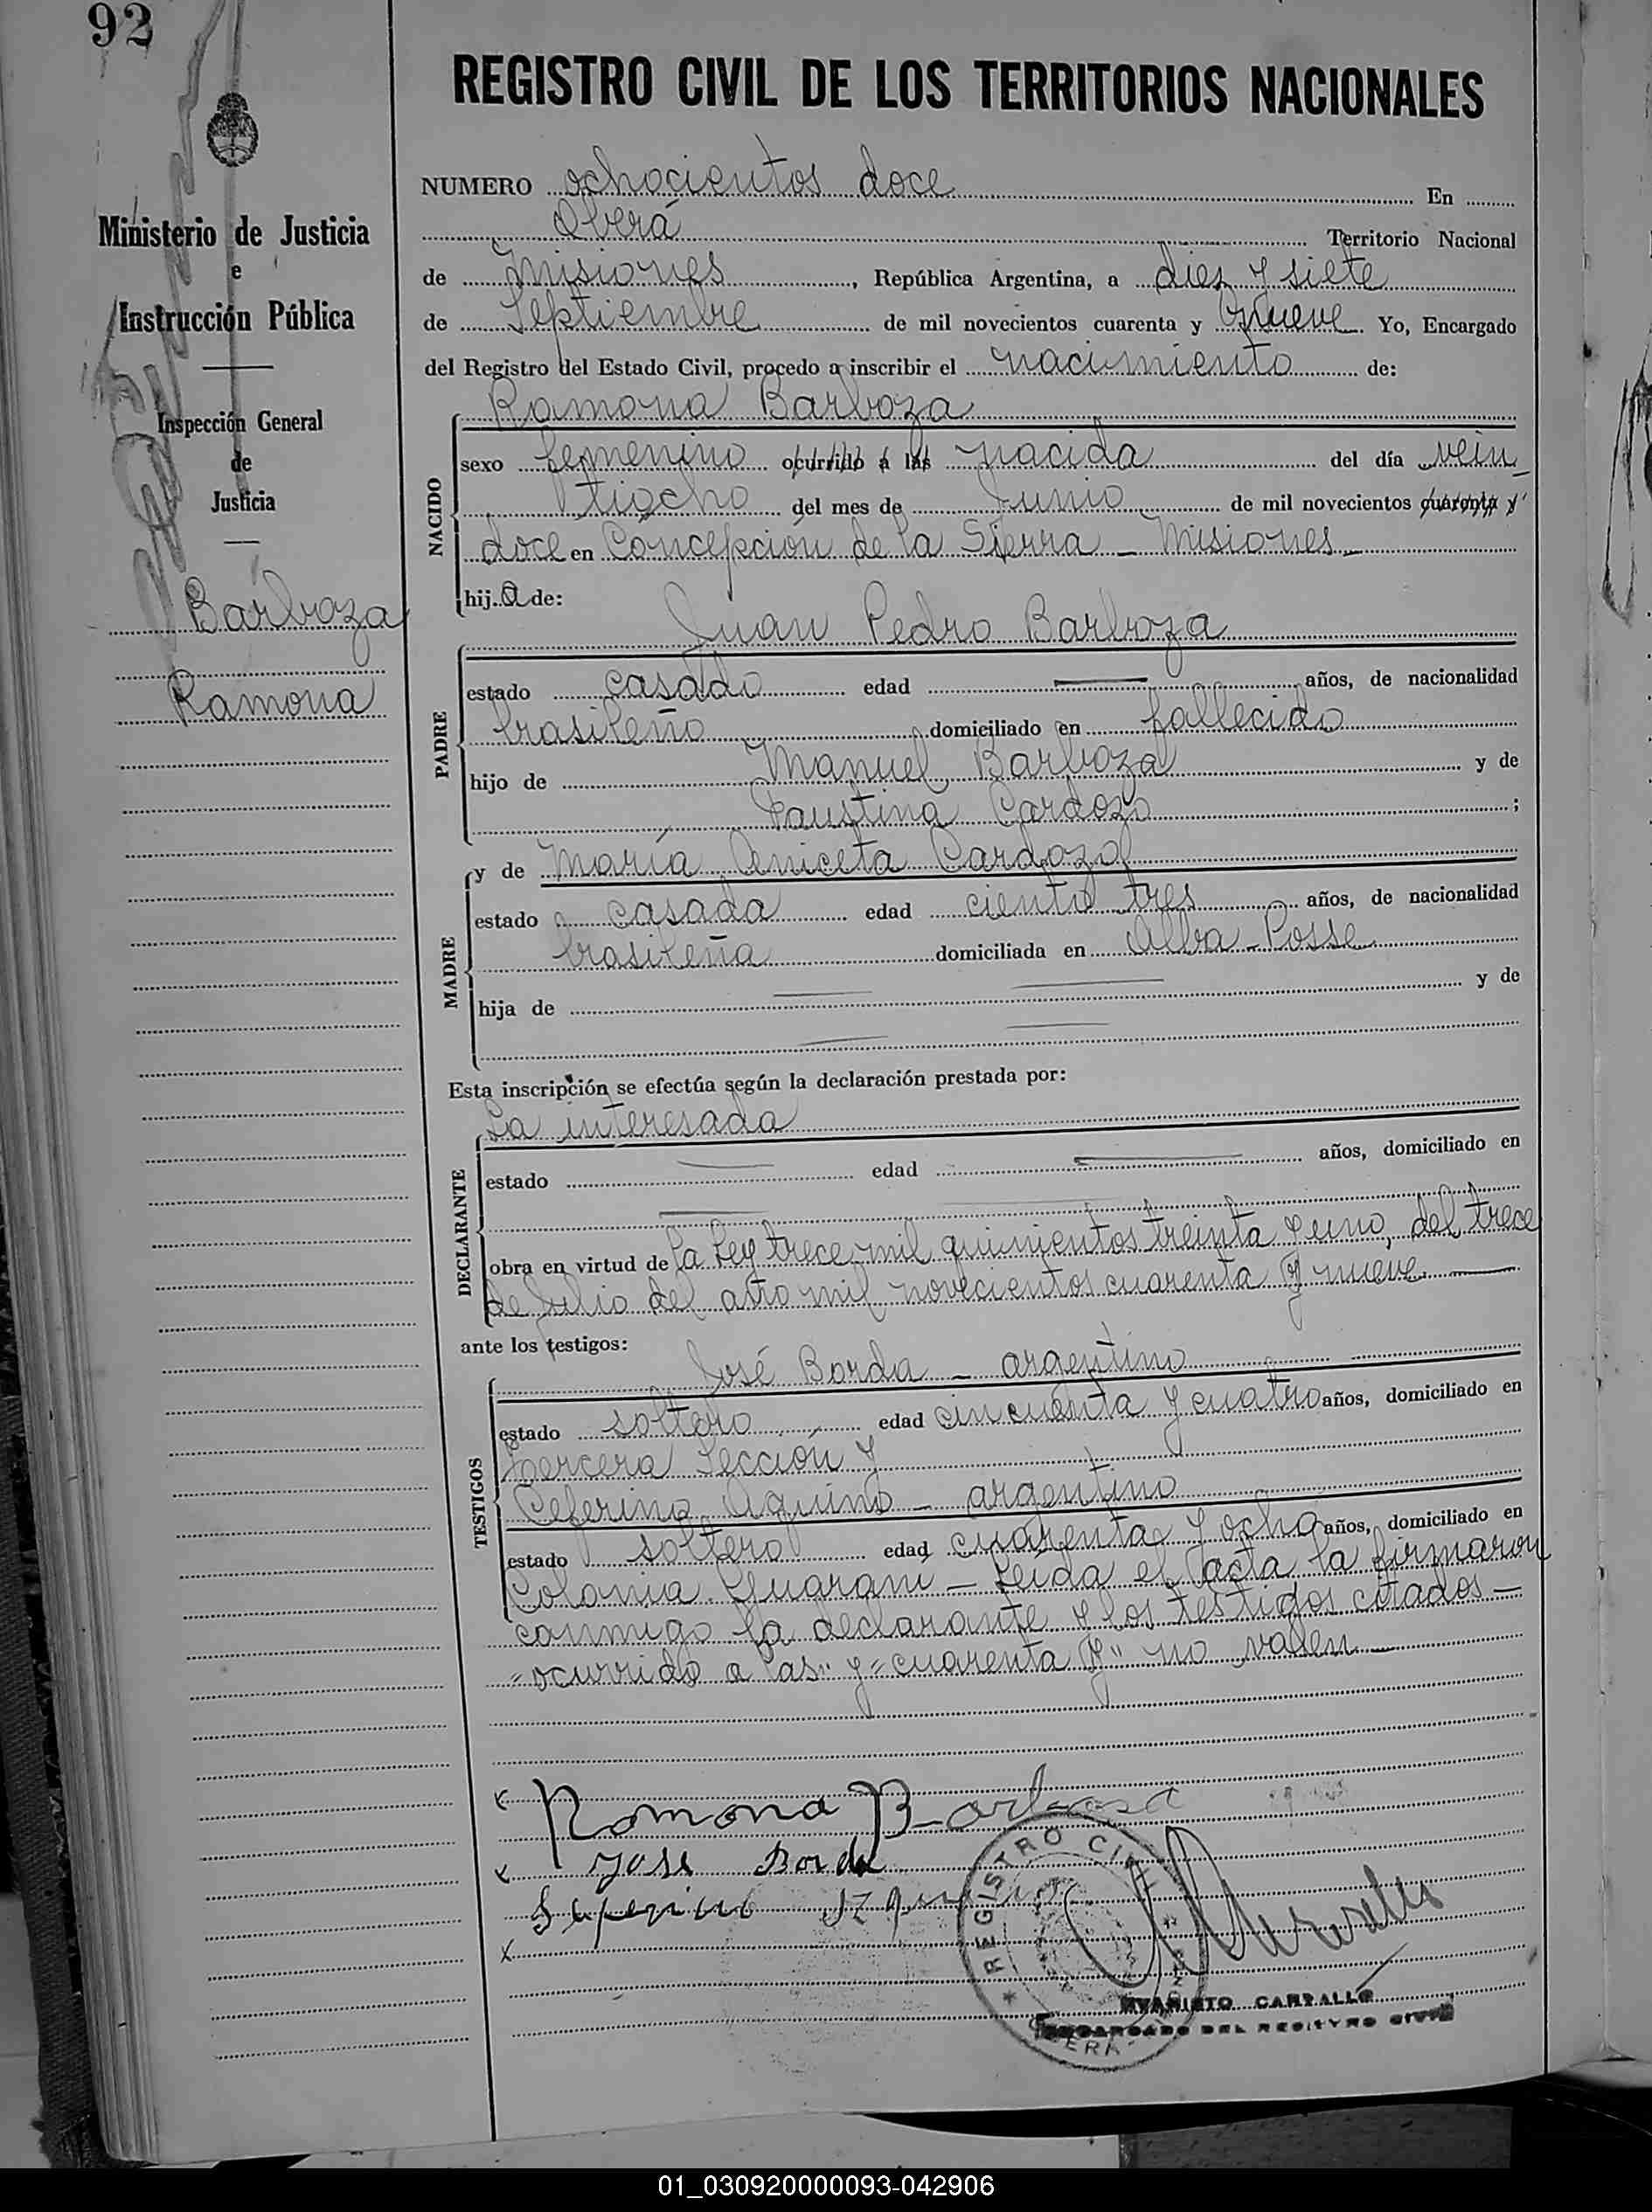 92
REGISTRO CIVIL DE LOS TERRITORIOS NACIONALES
Ministerio de Justicia
e
Instrucción Pública
Inspección General
de
Justicia
Barboza
Ramona
NUMERO ochocientos doce En
Oberá Territorio Nacional
de Misiones, República Argentina, a diez y siete
de Septiembre de mil novecientos cuarenta y nueve. Yo, Encargado
del Registro del Estado Civil, procedo a inscribir el nacimiento de:
Ramona Barboza
NACIDO
sexo femenino ocurrido á las nacida del día vein_
tiocho del mes de Junio de mil novecientos cuarenta y
doce en Concepción de la Sierra - Misiones -
hija de:
Juan Pedro Barboza
PADRE
estado casado edad años, de nacionalidad
brasileño domiciliado en fallecido
hijo de Manuel Barboza y de
Faustina Cardozo ;
y de María Aniceta Cardozo
MADRE
estado casada edad ciento tres años, de nacionalidad
brasileña domiciliada en Alba-Posse
hija de y de
Esta inscripción se efectúa según la declaración prestada por:
La interesada
DECLARANTE
estado edad años, domiciliado en
obra en virtud de la Ley trece mil quinientos treinta y uno, del trece
de Julio del año mil novecientos cuarenta y nueve.
ante los testigos:
José Borda - argentino
TESTIGOS
estado soltero edad cincuenta y cuatro años, domiciliado en
tercera Sección y
Ceferino Aquino - argentino
estado soltero edad cuarenta y ocho años, domiciliado en
Colonia Guarani - Leída el acta la firmaron
conmigo la declarante y los testigos citados -
"ocurrido a las" y "cuarenta y" no valen -
Ramona Barboza
José Borda
REGISTRO CIVIL
EVARISTO CARBALLO
ENCARGADO DEL REGISTRO CIVIL
01_030920000093-042906